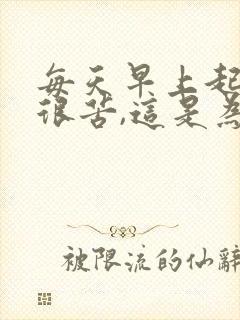 每天早上起
很苦,這是為
被限流的仙辭